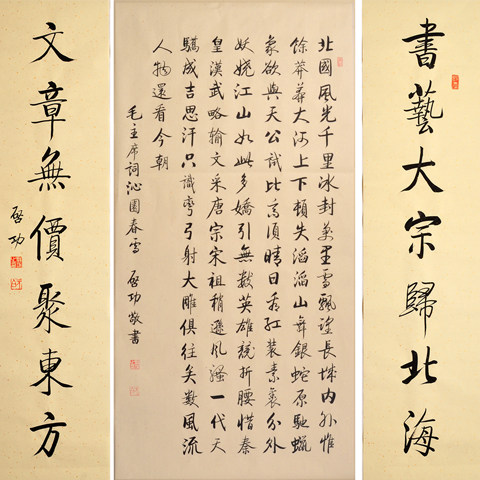 書藝大宗歸北海
北國風光千里冰封萬里雪飄望長城内外惟
餘莽莽大河上下頓失滔滔山舞銀蛇原馳蠟
象欲與天公試比高須晴日看紅裝素裹分外
妖嬈江山如此多嬌引無數英雄競折腰惜秦
皇漢武略輸文采唐宗宋祖稍遜風騷一代天
驕成吉思汗只識彎弓射大雕俱往矣數風流
人物還看今朝
毛主席詞沁園春雪 啓功敬書
文章無價聚東方
啓功